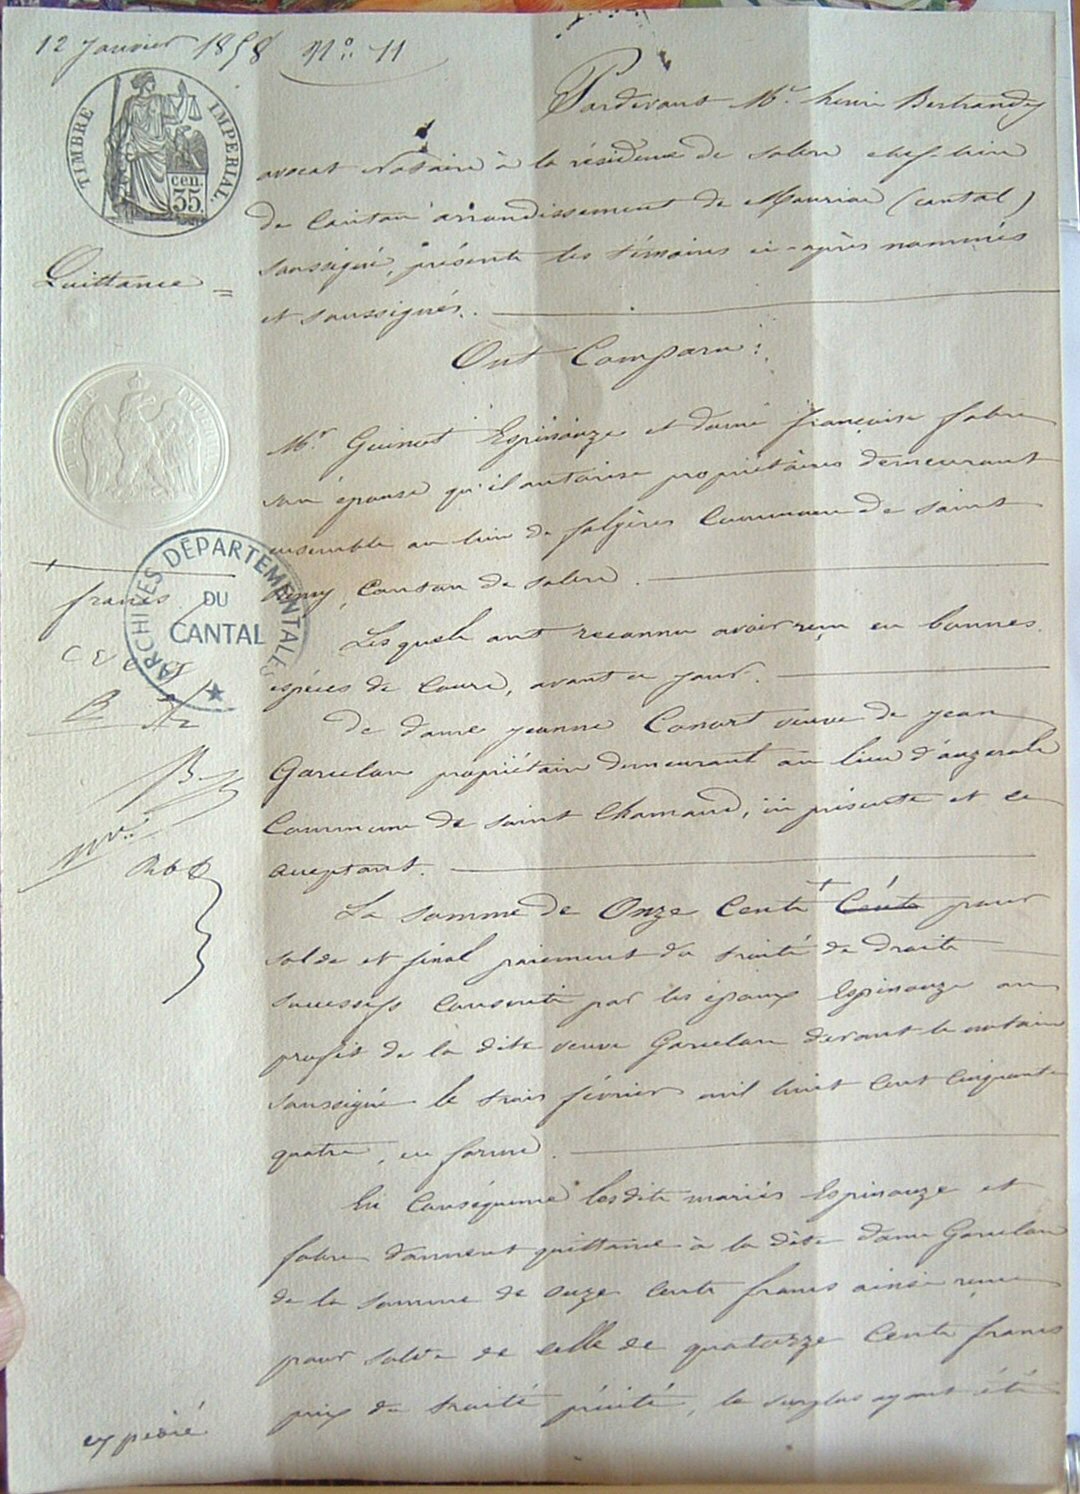 12 Janvier 1858 N° 11
TIMBRE IMPERIAL
35 cen.
Quittance =
Pardevant Me henri Bertrandy
avocat Notaire à la résidence de Salers chef-lieu
de Canton arrondissement de Mauriac (cantal)
soussigné, présents les témoins ci-après nommés
et soussignés.
Ont Comparu :
Mr Guinot Espinouze et dame françoise fabre
son épouse qu'il autorise propriétaires demeurant
ensemble au lieu de falgères Commune de Saint
Remy, Canton de Salers.
Lesquels ont reconnu avoir reçu en bonnes
espèces de Cours, avant ce jour.
De dame jeanne Conort veuve de jean
Garcelon propriétaire demeurant au lieu d'auzerale
Commune de saint Chamand, ici présente et ce
acceptant.
La somme de Onze Cents + Cents pour
solde et final paiement du traité de droits
successifs consenti par les époux Espinouze au
profit de la dite veuve Garcelon devant le notaire
soussigné le trois février mil huit cent cinquante
quatre, en forme.
En Conséquence lesdits mariés Espinouze et
fabre donnent quittance à la dite dame Garcelon
de la somme de onze Cents francs ainsi reçue
pour solde de celle de quatorze Cents francs
prix du traité précité, le surplus ayant été
+
francs
ARCHIVES DÉPARTEMENTALES
DU
CANTAL
expédié